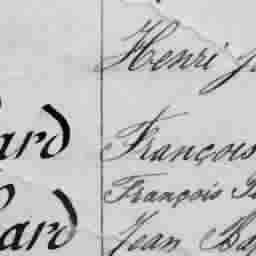 Henri
ard François
François
ard Jean Ba